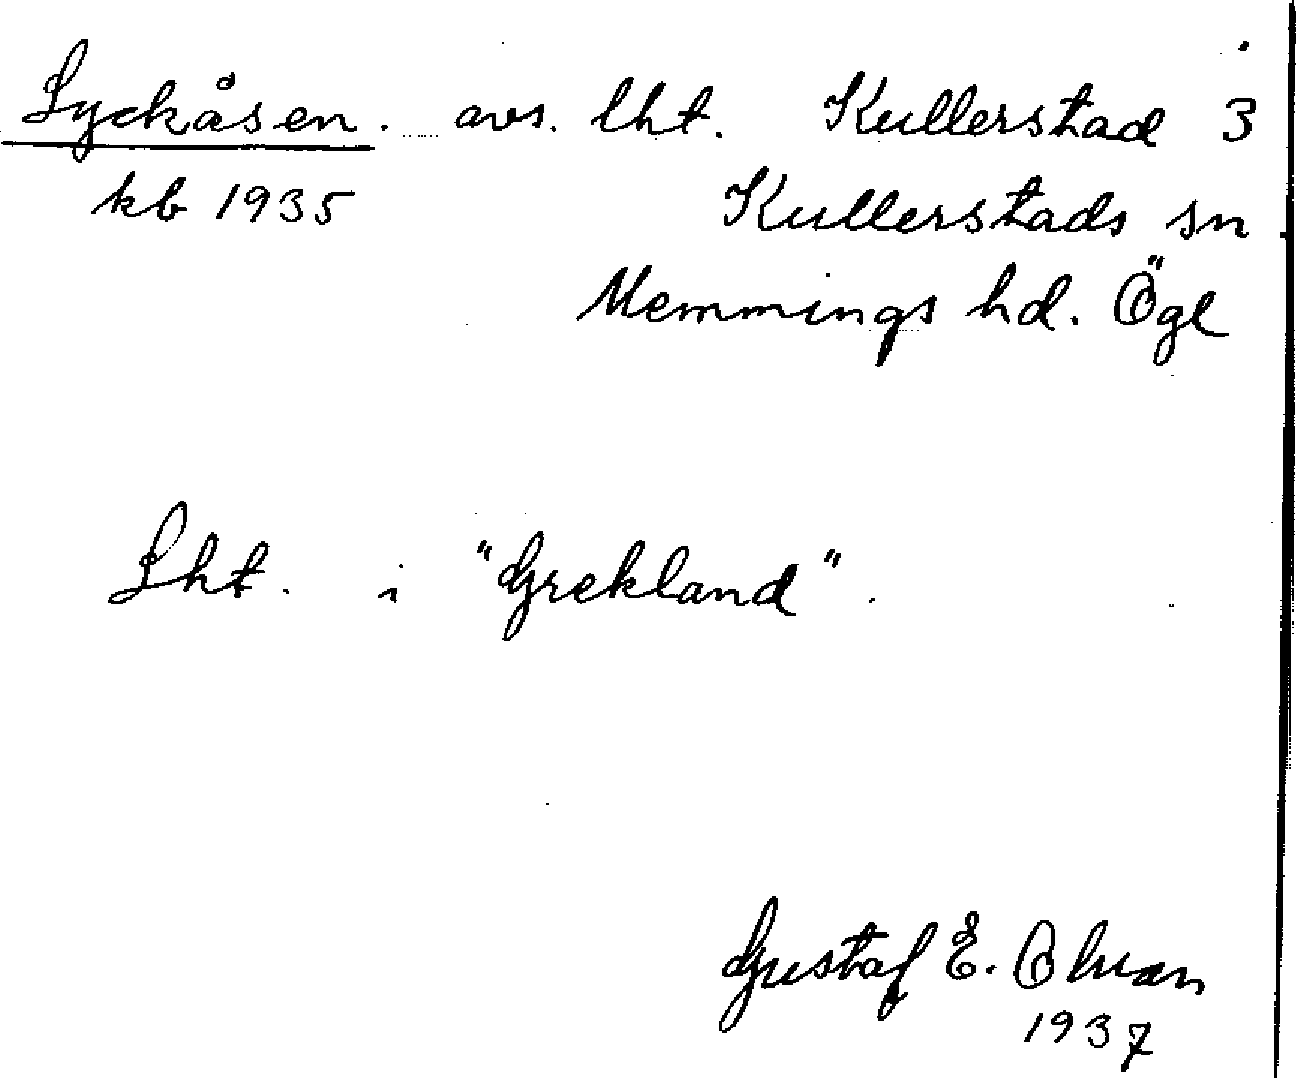 Lyckåsen. avs. lht. Kullerstad 3
kb 1935 Kullerstads sn.
Memmings hd. Ögl
Lht. i "Grekland".
Gustaf E. Olsson
1937